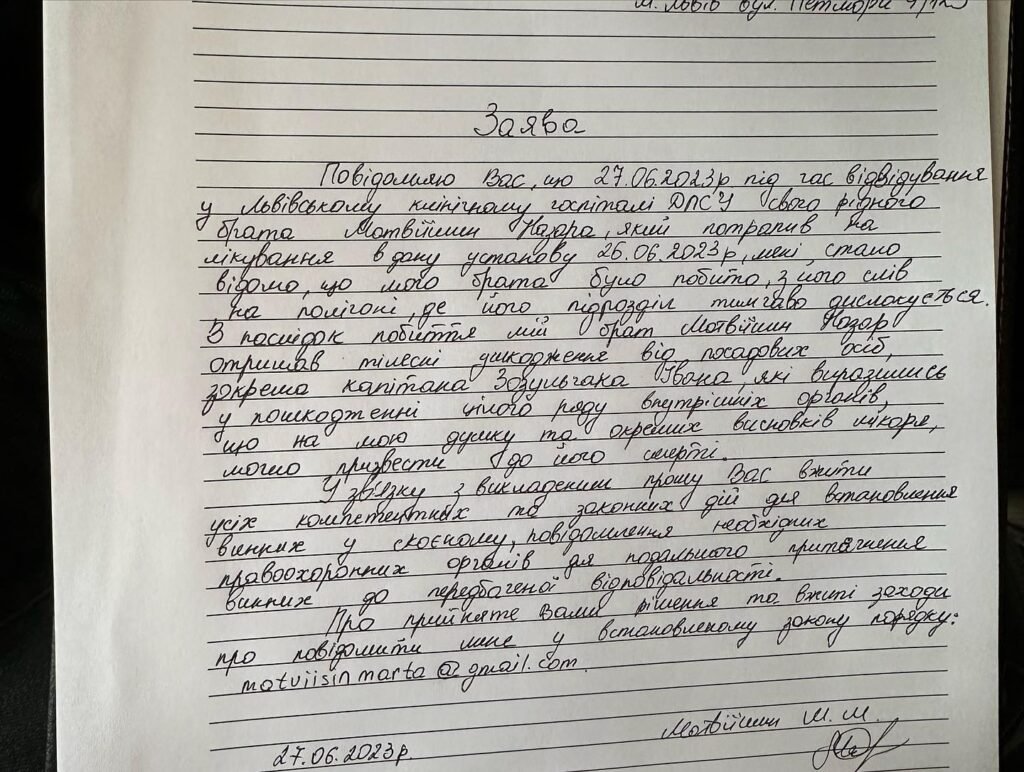 м. Львів вул.
Заява
Повідомляю Вас, що 27.06.2023р під час відвідування
у Львівському клінічному госпіталі ДПСУ свого рідного
брата Матвіїшин Назара, який потрапив на
лікування в дану установу 26.06.2023р, мені стало
відомо, що мого брата було побито, з його слів
, на полігоні, де його підрозділ тимчаво дислокується.
В послідок побиття мій брат Матвіїшин Назар
отримав тілесні ушкодження від посадових осіб,
зокрема капітана Зозульчака Івана, які виразились
у пошкодженні цілого ряду внутрішніх органів,
що на мою думку та окремих висновків лікаря,
могло призвести до його смерті.
У зв'язку з викладеним прошу Вас вжити
усіх компетентних та законних дій для встановлення
винних у скоєному, повідомлення необхідних
правоохоронних органів для подальшого притягнення
винних до передбаченої відповідальності.
Про прийняте Вами рішення та вжиті заходи
про повідомити мене у встановленому закону порядку:
matviisinmarta@gmail.com.
Матвіїшин М. М.
27.06.2023р.